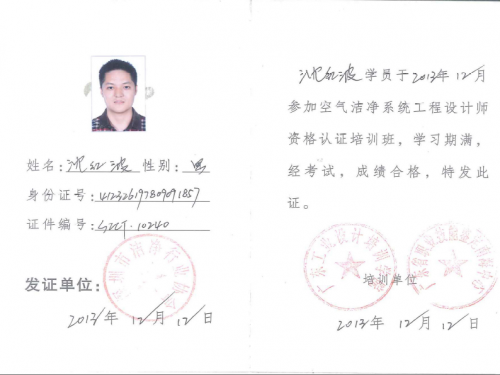 姓名：沈红波 性别：男
身份证号：412326197809091857
证件编号：10240
市洁净行业协会
发证单位：
2013年 12月 12日
沈红波学员于2013年12月
参加空气洁净系统工程设计师
资格认证培训班，学习期满，
经考试，成绩合格，特发此
证。
广东工业设计培训学院
培训单位
2013年 12月 12日